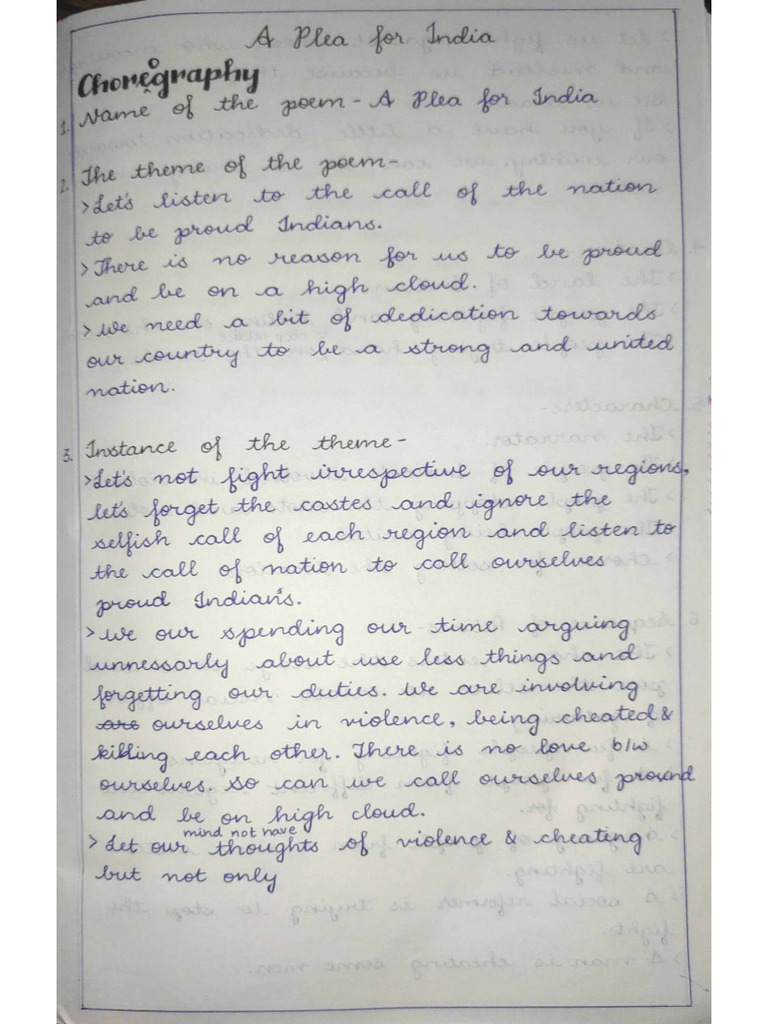 A Plea for India
Choreography
1. Name of the poem - A Plea for India
2. The theme of the poem-
> Let's listen to the call of the nation
to be proud Indians.
> There is no reason for us to be proud
and be on a high cloud.
> We need a bit of dedication towards
our country to be a strong and united
nation.
3. Instance of the theme -
> Let's not fight irrespective of our regions,
let's forget the castes and ignore the
selfish call of each region and listen to
the call of nation to call ourselves
proud Indian's.
> We our spending our time arguing
unnessarly about use less things and
forgetting our duties. We are involving
are ourselves in violence, being cheated &
killing each other. There is no love b/w
ourselves. So can we call ourselves pround
and be on high cloud.
mind not have
> Let our thoughts of violence & cheating
but not only